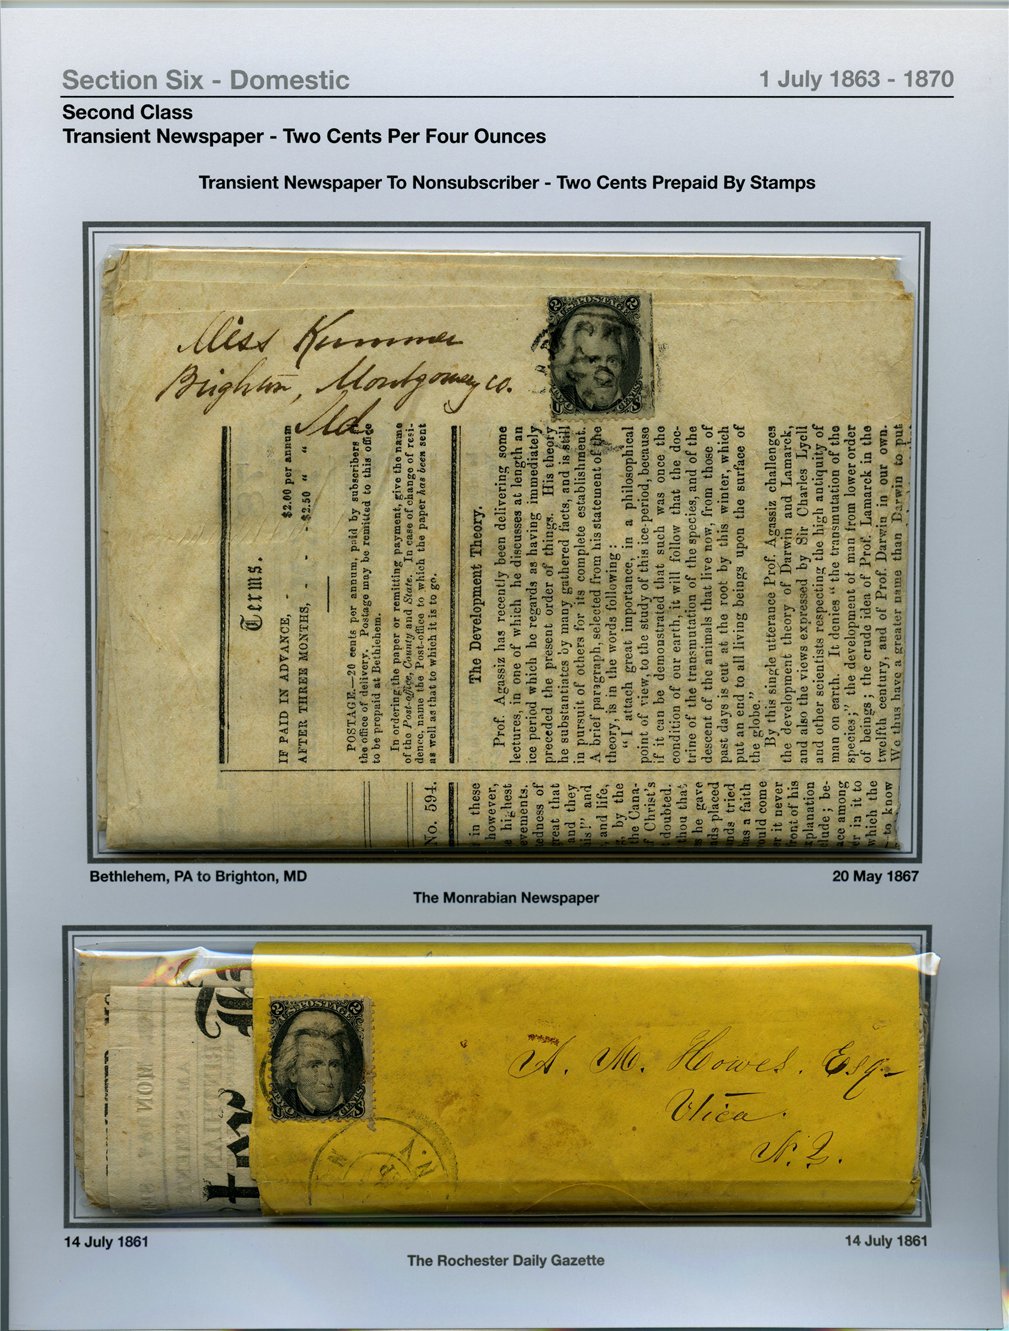 Section Six - Domestic
1 July 1863 - 1870
Second Class
Transient Newspaper - Two Cents Per Four Ounces
Transient Newspaper To Nonsubscriber - Two Cents Prepaid By Stamps
Miss Kummer
Brighton, Montgomery co.
Md
U.S. POSTAGE
Terms.
IF PAID IN ADVANCE, - $2.00 per annum
AFTER THREE MONTHS, - - $2.50 " "
POSTAGE.—20 cents per annum, paid by subscribers at
the office of delivery. Postage may be remitted to this office
to be prepaid at Bethlehem.
In ordering the paper or remitting payment, give the name
of the Post-office, County and State. In case of change of resi-
dence, name the Post-office to which the paper has been sent
as well as that to which it is to go.
The Development Theory.
Prof. Agassiz has recently been delivering some
lectures, in one of which he discusses at length an
ice period which he regards as having immediately
preceded the present order of things. His theory
he substantiates by many gathered facts, and is still
in pursuit of others for its complete establishment.
A brief paragraph, selected from his statement of the
theory, is in the words following:
"I attach great importance, in a philosophical
point of view, to the study of this ice-period, because
if it can be demonstrated that such was once the
condition of our earth, it will follow that the doc-
trine of the transmutation of the species, and of the
descent of the animals that live now, from those of
past days is cut at the root by this winter, which
put an end to all living beings upon the surface of
the globe."
By this single utterance Prof. Agassiz challenges
the development theory of Darwin and Lamarck,
and also the views expressed by Sir Charles Lyell
and other scientists respecting the high antiquity of
man on earth. It denies "the transmutation of the
species;" the development of man from lower order
of beings; the crude idea of Prof. Lamarck in the
twelfth century, and of Prof. Darwin in our own.
We thus have a greater name than Darwin to put
No. 594.
in these
however,
highest
evements.
edness of
reat that
and they
his!" and
and life,
by the
the Cana-
f Christ's
doubted.
thou that
he gave
ads placed
nds tried
as a faith
ould come
er it never
front of his
xplanation
elude; be-
ace among
er in it to
which the
to know
Bethlehem, PA to Brighton, MD
20 May 1867
The Monrabian Newspaper
U.S. POSTAGE
A. M. Howes. Esq
Utica.
N. Y.
N.Y.
14 July 1861
14 July 1861
The Rochester Daily Gazette